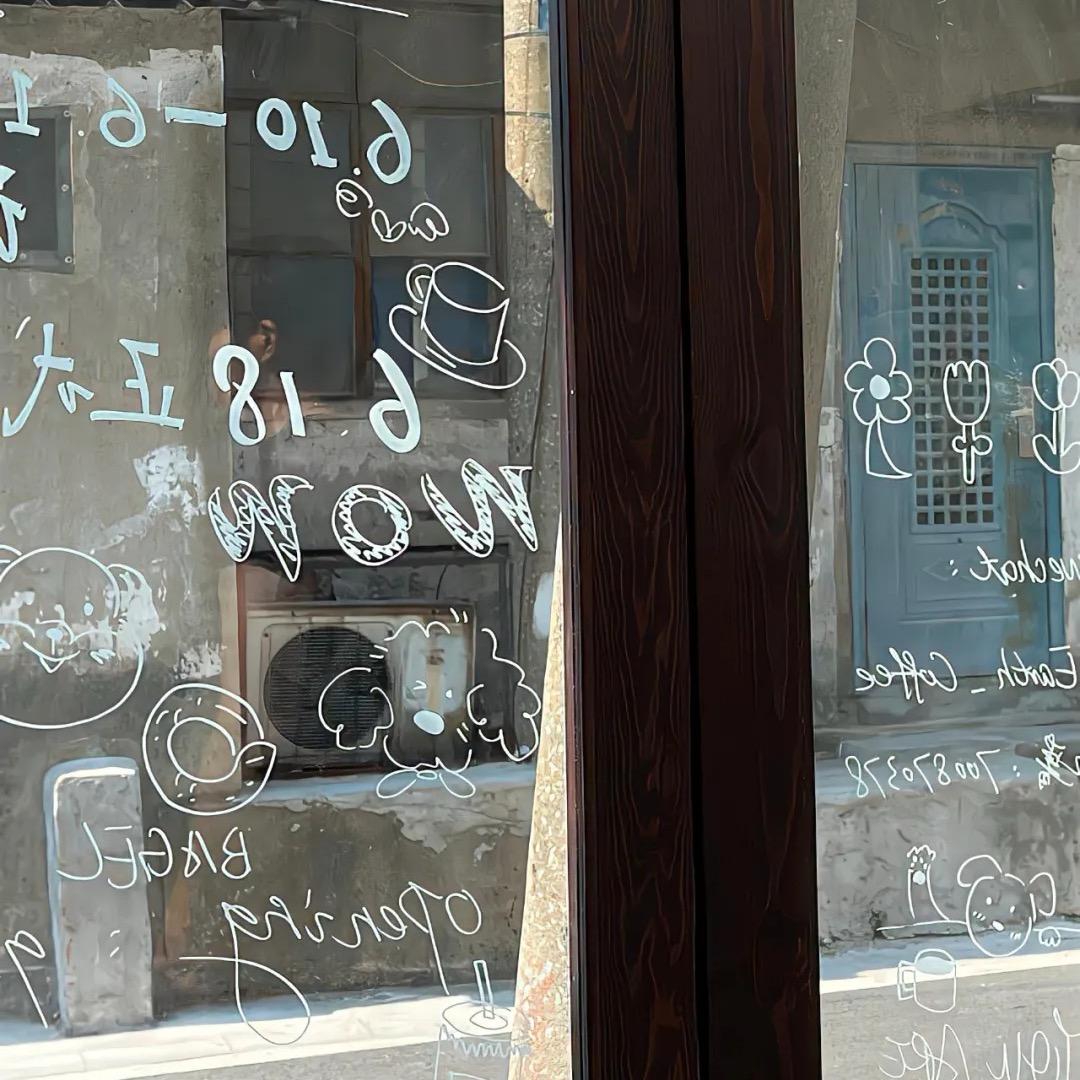 6.10-6.1
6.18 正式
NOW
BAGEL
opening
wechat:
Earth_Coffee
: 700870378
You Are